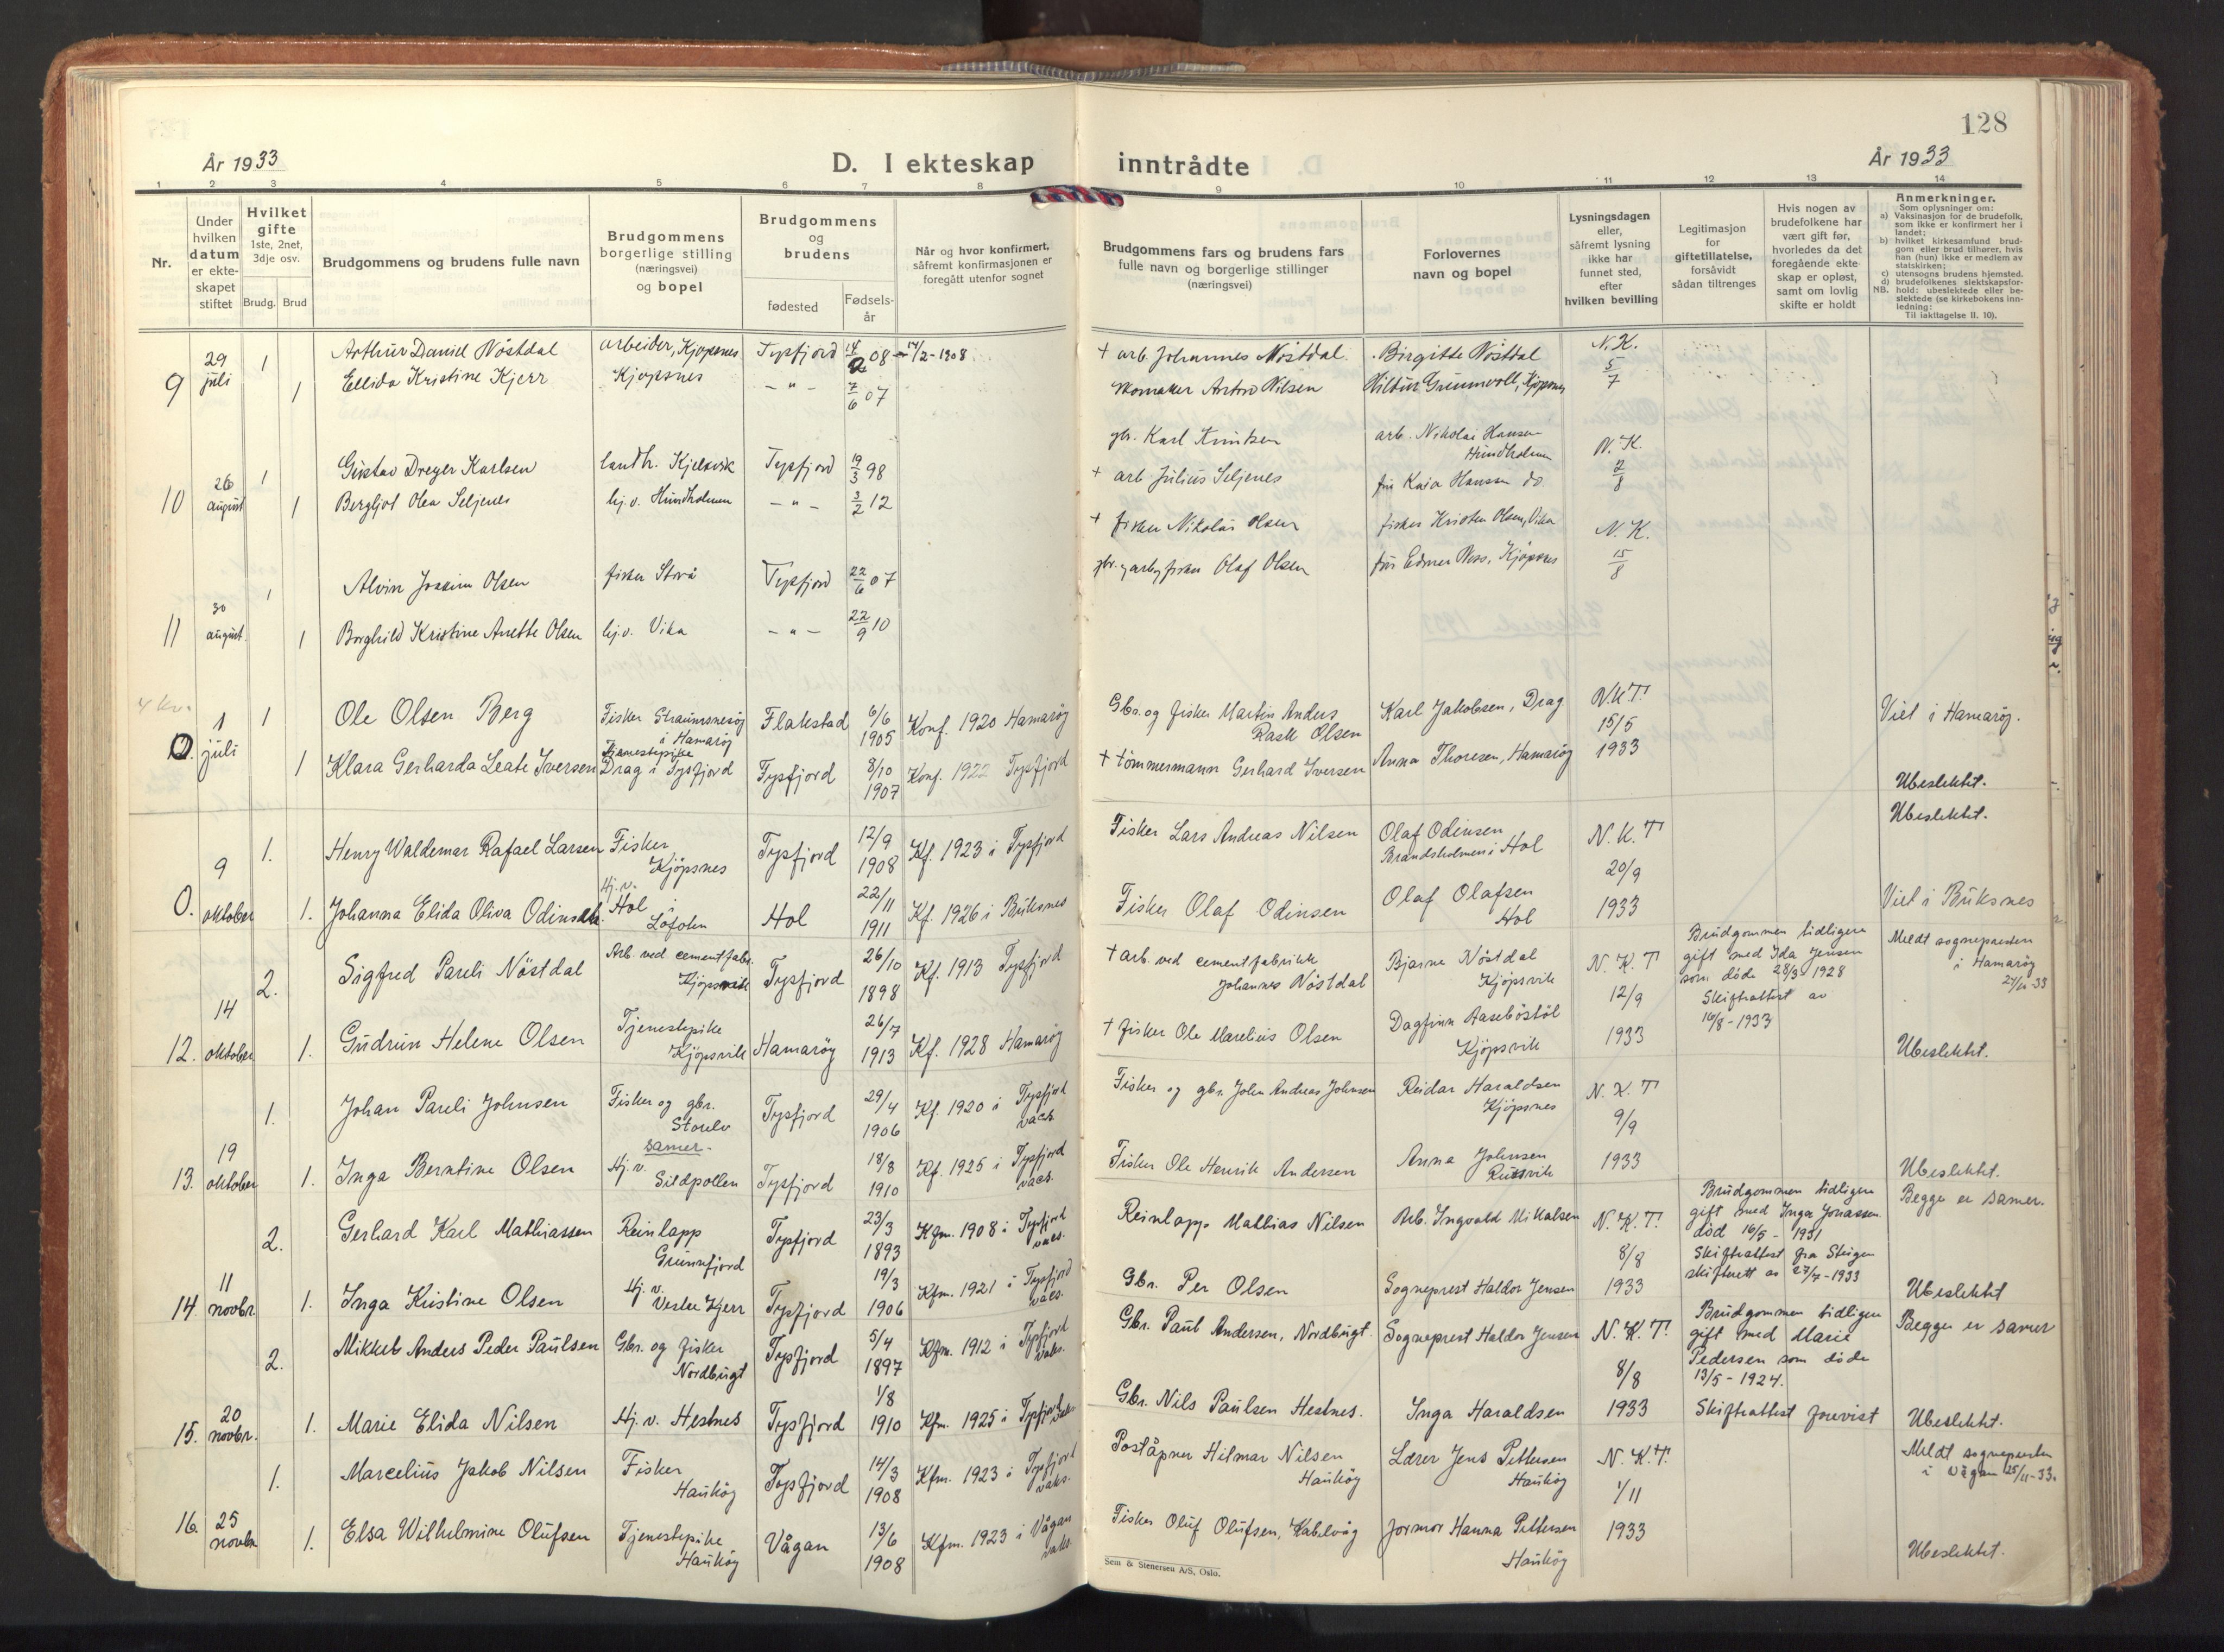 128
År 1933
D. I ekteskap inntrådte
År 1933
1 2 3 4 5 6 7 8 9 10 11 12 13 14
Nr.
Under hvilken datum er ekteskapet stiftet
Hvilket gifte
1ste, 2net, 3dje osv.
Brudg. Brud
Brudgommens og brudens fulle navn
Brudgommens borgerlige stilling (næringsvei) og bopel
Brudgommens og brudens
fødested
Fødselsår
Når og hvor konfirmert, såfremt konfirmasjonen er foregått utenfor sognet
Brudgommens fars og brudens fars fulle navn og borgerlige stillinger (næringsvei)
Forlovernes navn og bopel
Lysningsdagen eller, såfremt lysning ikke har funnet sted, efter hvilken bevilling
Legitimasjon for giftetillatelse, forsåvidt sådan tiltrenges
Hvis nogen av brudefolkene har vært gift før, hvorledes da det foregående ekteskap er opløst, samt om lovlig skifte er holdt
Anmerkninger.
Som oplysninger om:
a) Vaksinasjon for de brudefolk, som ikke er konfirmert her i landet;
b) hvilket kirkesamfund brudgom eller brud tilhører, hvis han (hun) ikke er medlem av statskirken;
c) utensogns brudens hjemsted.
d) brudefolkenes slektskapsforhold: ubeslektede eller beslektede (se kirkebokens innledning:
NB.
Til iakttagelse II. 10).
9 29 juli 1 Arthur Daniel Nöstdal arbeider, Kjøpsnes Tysfjord 08 14/2-1908 + arb. Johannes Nöstdal. Birgitte Nöstdal N.K. 5/7
1 Ellida Kristine Kjerr Kjøpsnes — " — 7/6 07 Skomaker Anton Nilsen
10 26 august 1 Gustav Dreyer Karlsen landh. Kjelsvik Tysfjord 19/3 98 gbr. Karl Knutsen arb. Nikolai Hansen Hundholmen N.K. 2/8
1 Bergljot Olea Seljenes hj.v. Hundholmen — " — 3/2 12 + arb Julius Seljenes fru Kaia Hansen do
11 30 august 1 Alvin Joakim Olsen fisker Storå Tysfjord 22/6 07 + fisker Nikolai Olsen fisker Kristen Olsen, Vika N.K. 15/8
1 Borghild Kristine Anette Olsen hj.v. Vika — " — 22/9 10 fisker Olaf Olsen
4 kv.
0. 1 juli 1 Ole Olsen Berg Fisker Straumsnesøy i Hamarøy Flakstad 6/6 1905 Konf. 1920 Hamarøy Gbr. og fisker Martin Anders Rask Olsen Karl Jakobsen, Drag N.K.T. 15/5 1933 Viet i Hamarøy.
1 Klara Gerharda Leate Iversen Tjenestepike Drag i Tysfjord Tysfjord 8/10 1907 Konf. 1922 Tysfjord + tömmermann Gerhard Iversen Anna Thoresen, Hamarøy Ubeslektet.
0. 9 oktober 1. Henry Waldemar Rafael Larsen Fisker Kjöpsnes Tysfjord 12/9 1908 Kf. 1923 i Tysfjord Fisker Lars Andreas Nilsen Olaf Odinsen Brandsholmen i Hol N.K.T 20/9 1933 Ubeslektet.
1. Johanna Elida Oliva Odinsen. Hj.v. Hol i Lofoten Hol 22/11 1911 Kf. 1926 i Buksnes Fisker Olaf Odinsen Olaf Olafsen Hol Viet i Buksnes
12. 14 oktober 2. Sigfred Pareli Nöstdal Arb. ved cementfabr. Kjöpsvik Tysfjord 26/10 1898 Kf. 1913 Tysfjord + arb. ved cementfabrikk Johannes Nöstdal Bjarne Nöstdal Kjöpsvik N.K.T 12/9 1933 Brudgommen tidligere gift med Ida Jensen som döde 28/3-1928 Skifteattest av 16/8-1933 Meldt sognepresten i Hamarøy 27/11-33
1. Gudrun Helene Olsen Tjenestepike Kjöpsvik Hamarøy 26/7 1913 Kf. 1928 Hamarøy + fisker Ole Marelius Olsen Dagfinn Aaseböstöl Kjöpsvik Ubeslektet.
13. 19 oktober 1. Johan Pareli Johnsen Fisker og gbr. Storelv Tysfjord 29/4 1906 Kf. 1920 i Tysfjord vacs. Fisker og gbr. John Andreas Johnsen Reidar Haraldsen Kjöpsnes N.K.T 9/9 1933
samer.
1. Inga Berntine Olsen Hj.v. Sildpollen Tysfjord 18/8 1910 Kf. 1925 i Tysfjord vacs. Fisker Ole Henrik Andersen Anna Johnsen Ubeslektet.
14. 11 novbr. 2. Gerhard Karl Mathiassen Reinlapp Grunnfjord Tysfjord 23/3 1893 Kfm. 1908 i Tysfjord vacs. Reinlapp Mathias Nilsen Arb. Ingvald Mikalsen N.K.T. 8/8 1933 Brudgommen tidligere gift med Inga Jonassen död 16/5-1931 Skifteattest fra Steigen skifterett av 27/7-1933 Begge er samer.
1. Inga Kristine Olsen Hj.v. Vestre Kjerr Tysfjord 19/3 1906 Kfm. 1921 i Tysfjord vacs. Gbr. Per Olsen Sogneprest Haldor Jensen Ubeslektet
15. 20 novbr. 2. Mikkel Anders Peder Paulsen Gbr. og fisker Nordbugt Tysfjord 5/4 1897 Kfm. 1912 i Tysfjord vaks. Gbr. Paul Andersen, Nordbugt. Sogneprest Haldor Jensen N.K.T. 8/8 1933 Brudgommen tidligere gift med Marie Pedersen som döde 13/5-1924. Skifteattest forevist Begge er samer
1. Marie Elida Nilsen Hj.v. Hestnes Tysfjord 1/8 1910 Kfm. 1925 i Tysfjord vaks. Gbr. Nils Paulsen Hestnes. Inga Haraldsen Ubeslektet.
16. 25 novbr 1. Marcelius Jakob Nilsen Fisker Haukøy Tysfjord 14/3 1908 Kfm. 1923 i Tysfjord vaks. Poståpner Hilmar Nilsen Haukøy Lærer Jens Pettersen Haukøy N.K.T. 1/11 1933 Meldt sognepresten i Vågan 25/11-33.
1. Elsa Wilhelmine Olufsen Tjenestepike Haukøy Vågan 13/6 1908 Kfm. 1923 i Vågan vaks. Fisker Oluf Olufsen, Kabelvåg Jormor Hanna Pettersen Haukøy Ubeslektet.
Sem & Stenersen A/S, Oslo.